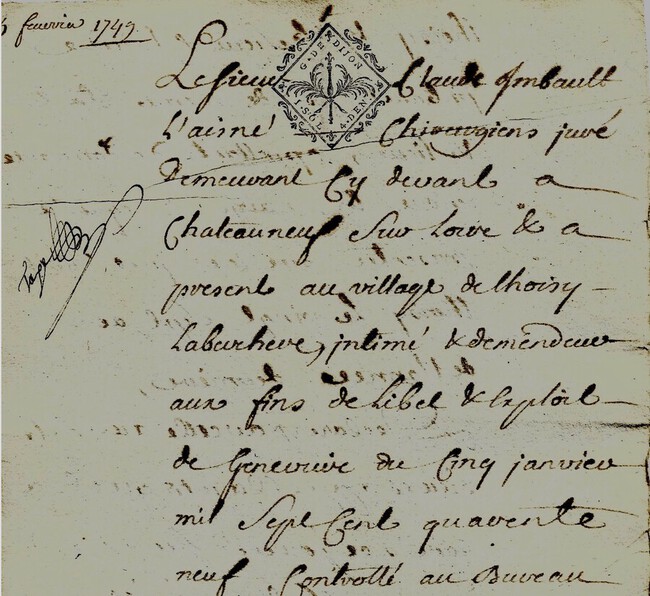 feuvrier 1749
G. DE DIJON
1. SOL 4. DEN.
Le Sieur Claude Imbault
L'aisné Chirurgiens juré
Demeurant Cy devant a
Chateauneuf Sur Loire & a
present au village de thoisy
Laberchere, intimé & demendeur
aux fins de Libel & Exploit
de Genevuire du Cinq janvier
mil Sept Cent quarente
neuf Controllé au Bureau